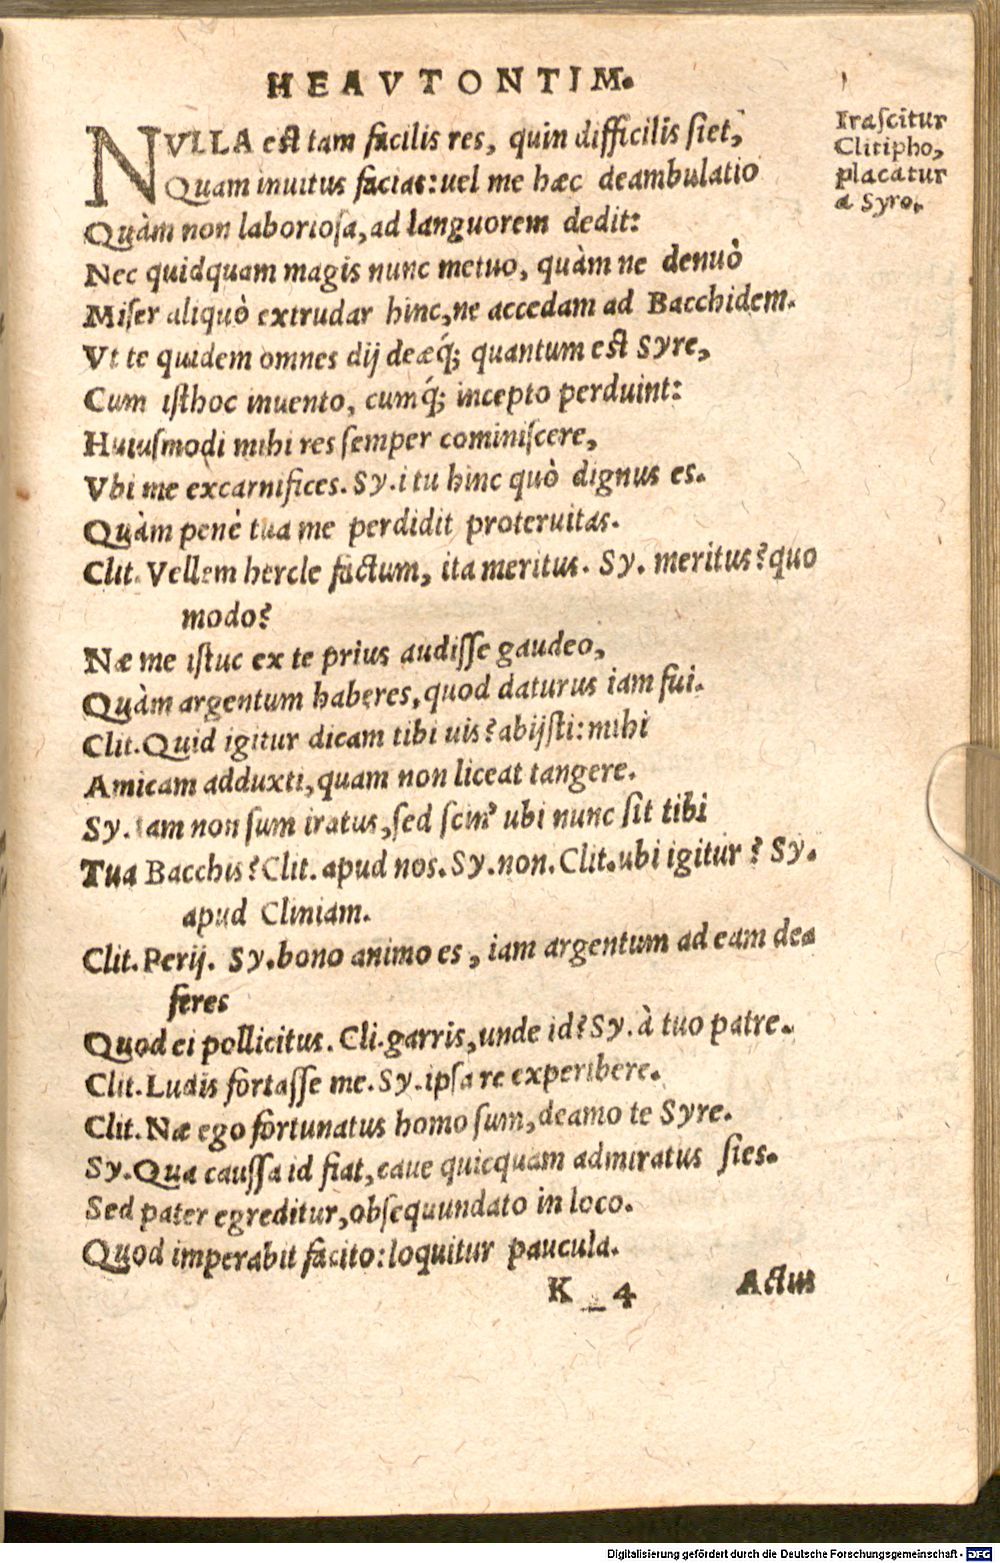 HEAVTONTIM.
NVLLA est tam facilis res, quin difficilis siet,
Quam inuitus facias: uel me hæc deambulatio
Quàm non laboriosa, ad languorem dedit:
Nec quidquam magis nunc metuo, quàm ne denuò
Miser aliquò extrudar hinc, ne accedam ad Bacchidem.
Vt te quidem omnes dij deæq́; quantum est Syre,
Cum isthoc inuento, cumq́; incepto perduint:
Huiusmodi mihi res semper cominiscere,
Vbi me excarnifices. Sy. i tu hinc quò dignus es.
Quàm penè tua me perdidit proteruitas.
Clit. Vellem hercle factum, ita meritus. Sy. meritus? quo
modo?
Næ me istuc ex te prius audisse gaudeo,
Quàm argentum haberes, quod daturus iam fui.
Clit. Quid igitur dicam tibi uis? abijsti: mihi
Amicam adduxti, quam non liceat tangere.
Sy. Iam non sum iratus, sed scin' ubi nunc sit tibi
Tua Bacchis? Clit. apud nos. Sy. non. Clit. ubi igitur? Sy.
apud Cliniam.
Clit. Perij. Sy. bono animo es, iam argentum ad eam dea
feres
Quod ei pollicitus. Cli. garris, unde id? Sy. à tuo patre.
Clit. Ludis fortasse me. Sy. ipsa re experibere.
Clit. Næ ego fortunatus homo sum, deamo te Syre.
Sy. Qua caussa id fiat, caue quicquam admiratus sies.
Sed pater egreditur, obsequundato in loco.
Quod imperabit facito: loquitur paucula.
K 4 Actus
Irascitur
Clitipho,
placatur
a Syro.
Digitalisierung gefördert durch die Deutsche Forschungsgemeinschaft - DFG